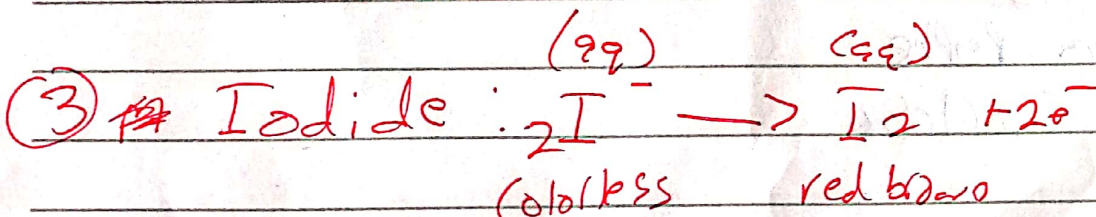 (aq) (aq)
③ Iodide : 2I⁻ —> I2 +2e⁻
Colorless red brown